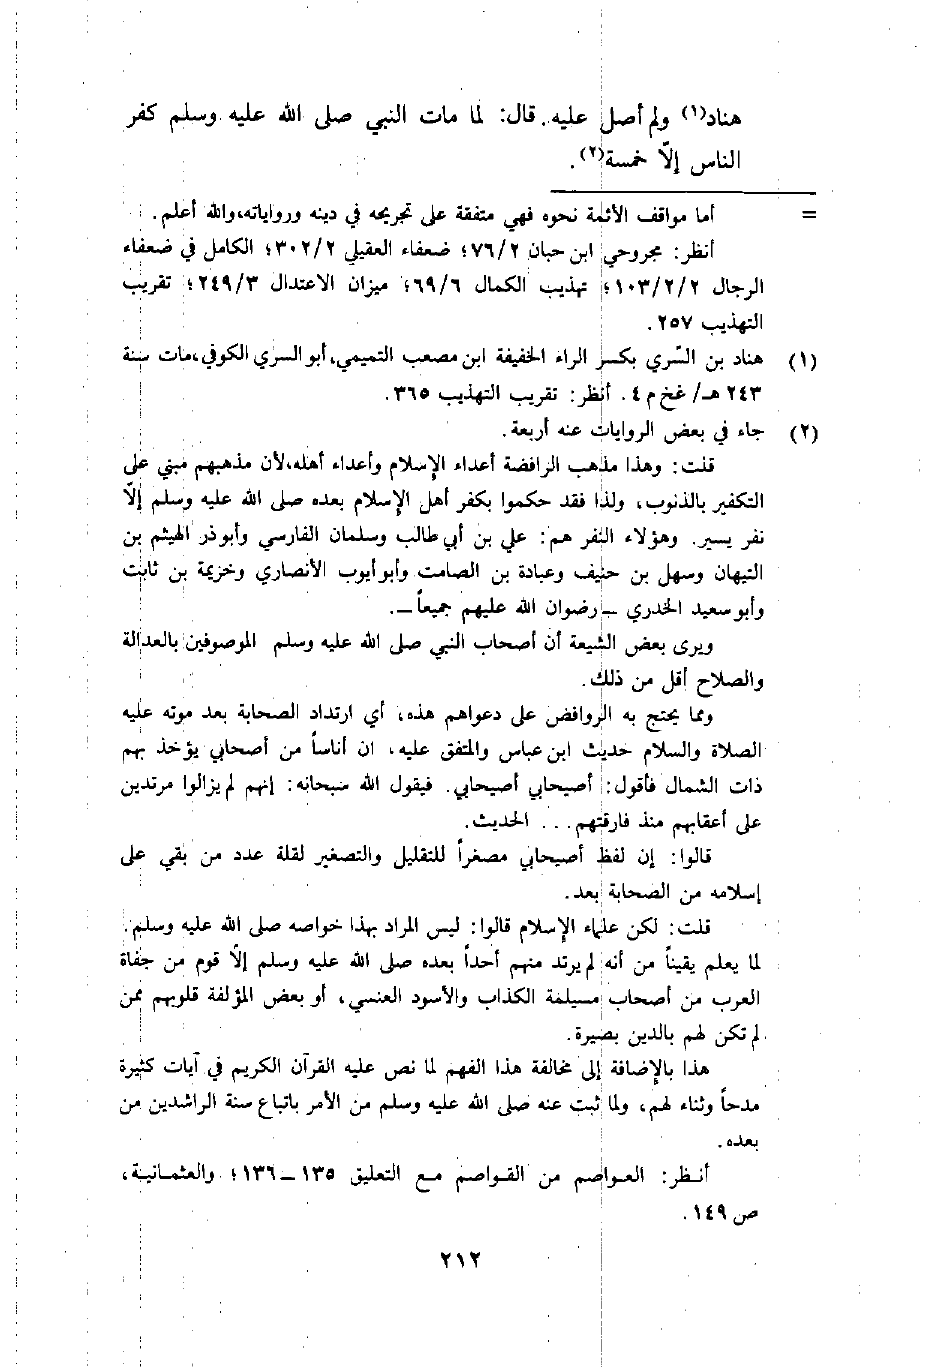 هناد(١) ولم أصل عليه. قال: لما مات النبي صلى الله عليه وسلم كفر
الناس إلّا خمسة(٢).
= أما مواقف الأئمة نحوه فهي متفقة على تجريحه في دينه ورواياته، والله أعلم.
أنظر: مجروحي ابن حبان ٧٦/٢؛ ضعفاء العقيلي ٣٠٢/٢؛ الكامل في ضعفاء
الرجال ١٠٣/٢/٢؛ تهذيب الكمال ٦٩/٦؛ ميزان الاعتدال ٢٤٩/٣؛ تقريب
التهذيب ٢٥٧.
(١) هناد بن السّري بكسر الراء الخفيفة ابن مصعب التميمي، أبو السري الكوفي، مات سنة
٢٤٣ هـ/ عخ م ٤. أنظر: تقريب التهذيب ٣٦٥.
(٢) جاء في بعض الروايات عنه أربعة.
قلت: وهذا مذهب الرافضة أعداء الإسلام وأعداء أهله، لأن مذهبهم مبني على
التكفير بالذنوب، ولذا فقد حكموا بكفر أهل الإسلام بعده صلى الله عليه وسلم إلّا
نفر يسير. وهؤلاء النفر هم: علي بن أبي طالب وسلمان الفارسي وأبو ذر الهيثم بن
التيهان وسهل بن حنيف وعبادة بن الصامت وأبو أيوب الأنصاري وخزيمة بن ثابت
وأبو سعيد الخدري ـ رضوان الله عليهم جميعاً ـ.
ويرى بعض الشيعة أن أصحاب النبي صلى الله عليه وسلم الموصوفين بالعدالة
والصلاح أقل من ذلك.
ومما يحتج به الروافض على دعواهم هذه، أي ارتداد الصحابة بعد موته عليه
الصلاة والسلام حديث ابن عباس والمتفق عليه، ان أناساً من أصحابي يؤخذ بهم
ذات الشمال فأقول: أصيحابي أصيحابي. فيقول الله سبحانه: إنهم لم يزالوا مرتدين
على أعقابهم منذ فارقتهم... الحديث.
قالوا: إن لفظ أصيحابي مصغراً للتقليل والتصغير لقلة عدد من بقي على
إسلامه من الصحابة بعد.
قلت: لكن علماء الإسلام قالوا: ليس المراد بهذا خواصه صلى الله عليه وسلم.
لما يعلم يقيناً من أنه لم يرتد منهم أحداً بعده صلى الله عليه وسلم إلّا قوم من جفاة
العرب من أصحاب مسيلمة الكذاب والأسود العنسي، أو بعض المؤلفة قلوبهم ممن
لم تكن لهم بالدين بصيرة.
هذا بالإضافة إلى مخالفة هذا الفهم لما نص عليه القرآن الكريم في آيات كثيرة
مدحاً وثناء لهم، ولما ثبت عنه صلى الله عليه وسلم من الأمر باتباع سنة الراشدين من
بعده.
أنظر: العواصم من القواصم مع التعليق ١٣٥ ـ ١٣٦؛ والعثمانية،
ص ١٤٩.
٢١٢